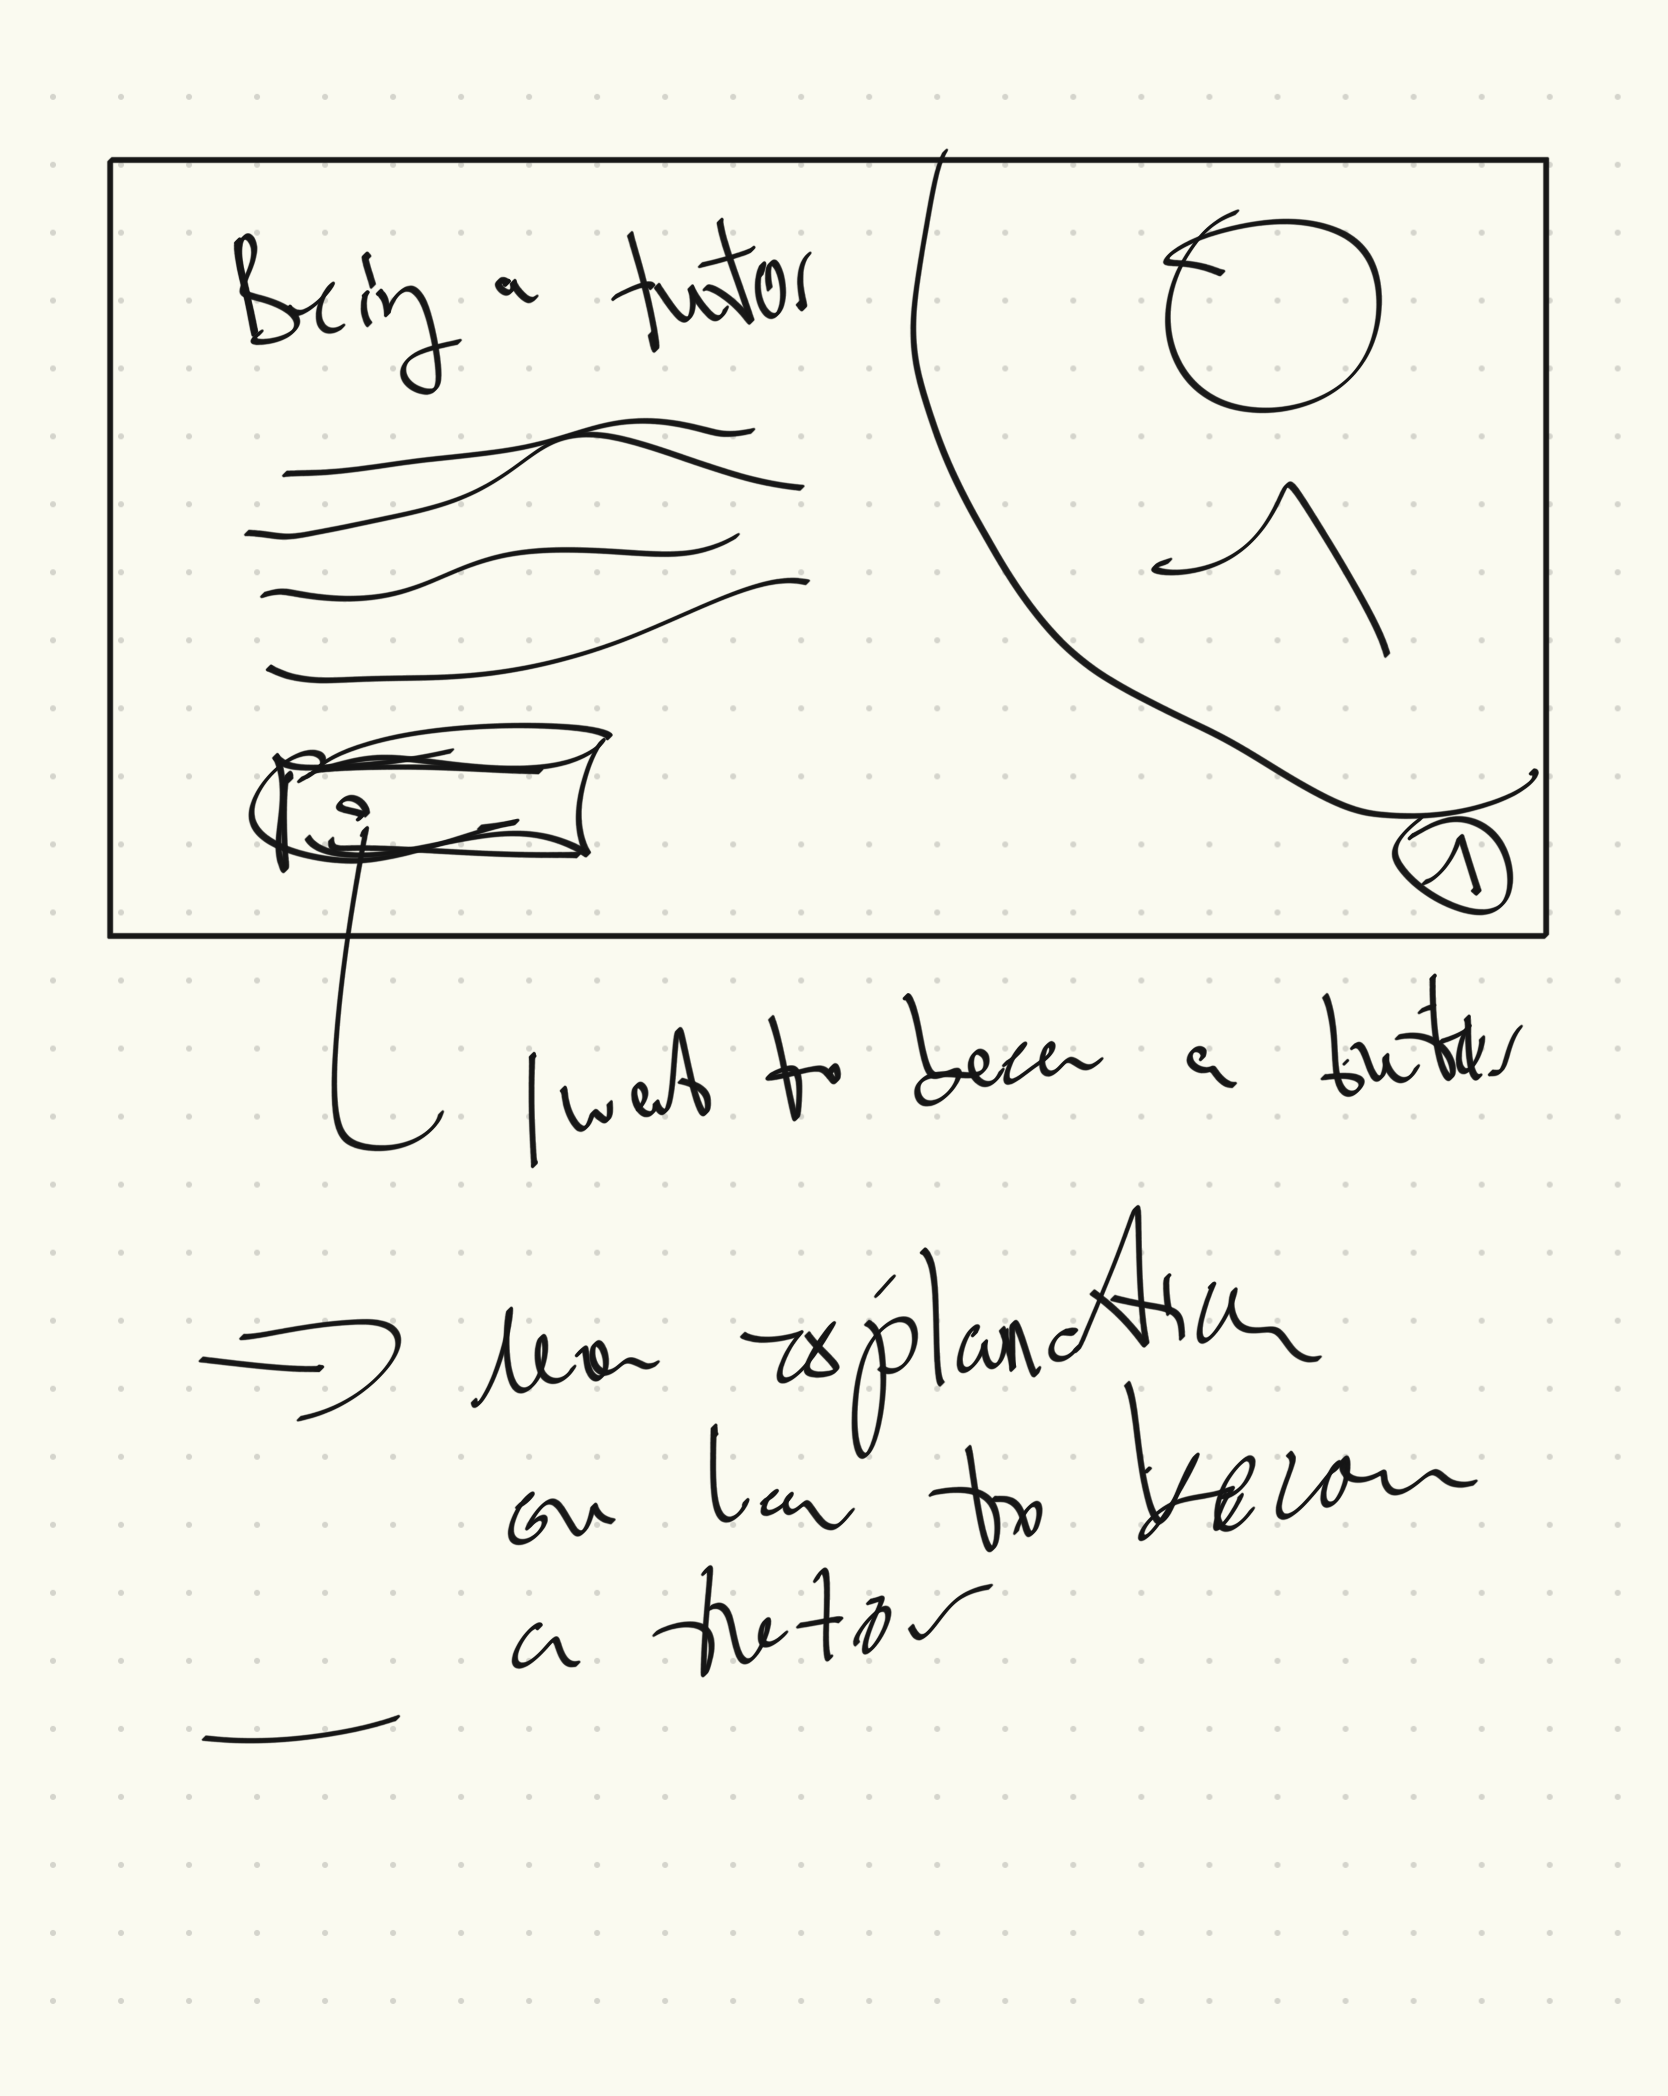 Being a tutor
1
I want to become a tutor
explanation
on how to become
a tutor